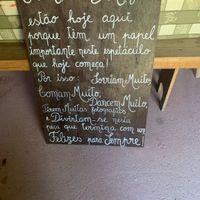 estão hoje aqui
porque têm um papel
importante neste espetáculo
que hoje começa!
Por isso: Sorriam Muito,
Comam Muito,
Dancem Muito,
Tirem Muitas fotografias
e Divirtam-se nesta
que termina com um
Felizes para Sempre